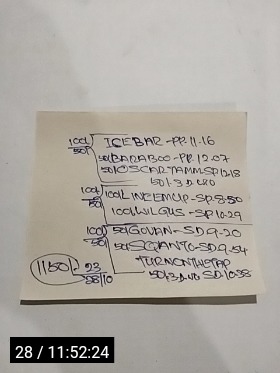 100/50 ICEBAR-PP.11-16
50/BARABOO-PP.12.07
50/OSCARTAMM.SP.12-18
100/50 100/LINEEMUP-SP.8.50
100/WILGUS-SP.10-29
100/50 50/GOVAN-SD.9-20
50/SQIANTO-SD.9.54
TURNONTHETAP
SD.10.38
1150/- 23
28/10
28 / 11:52:24